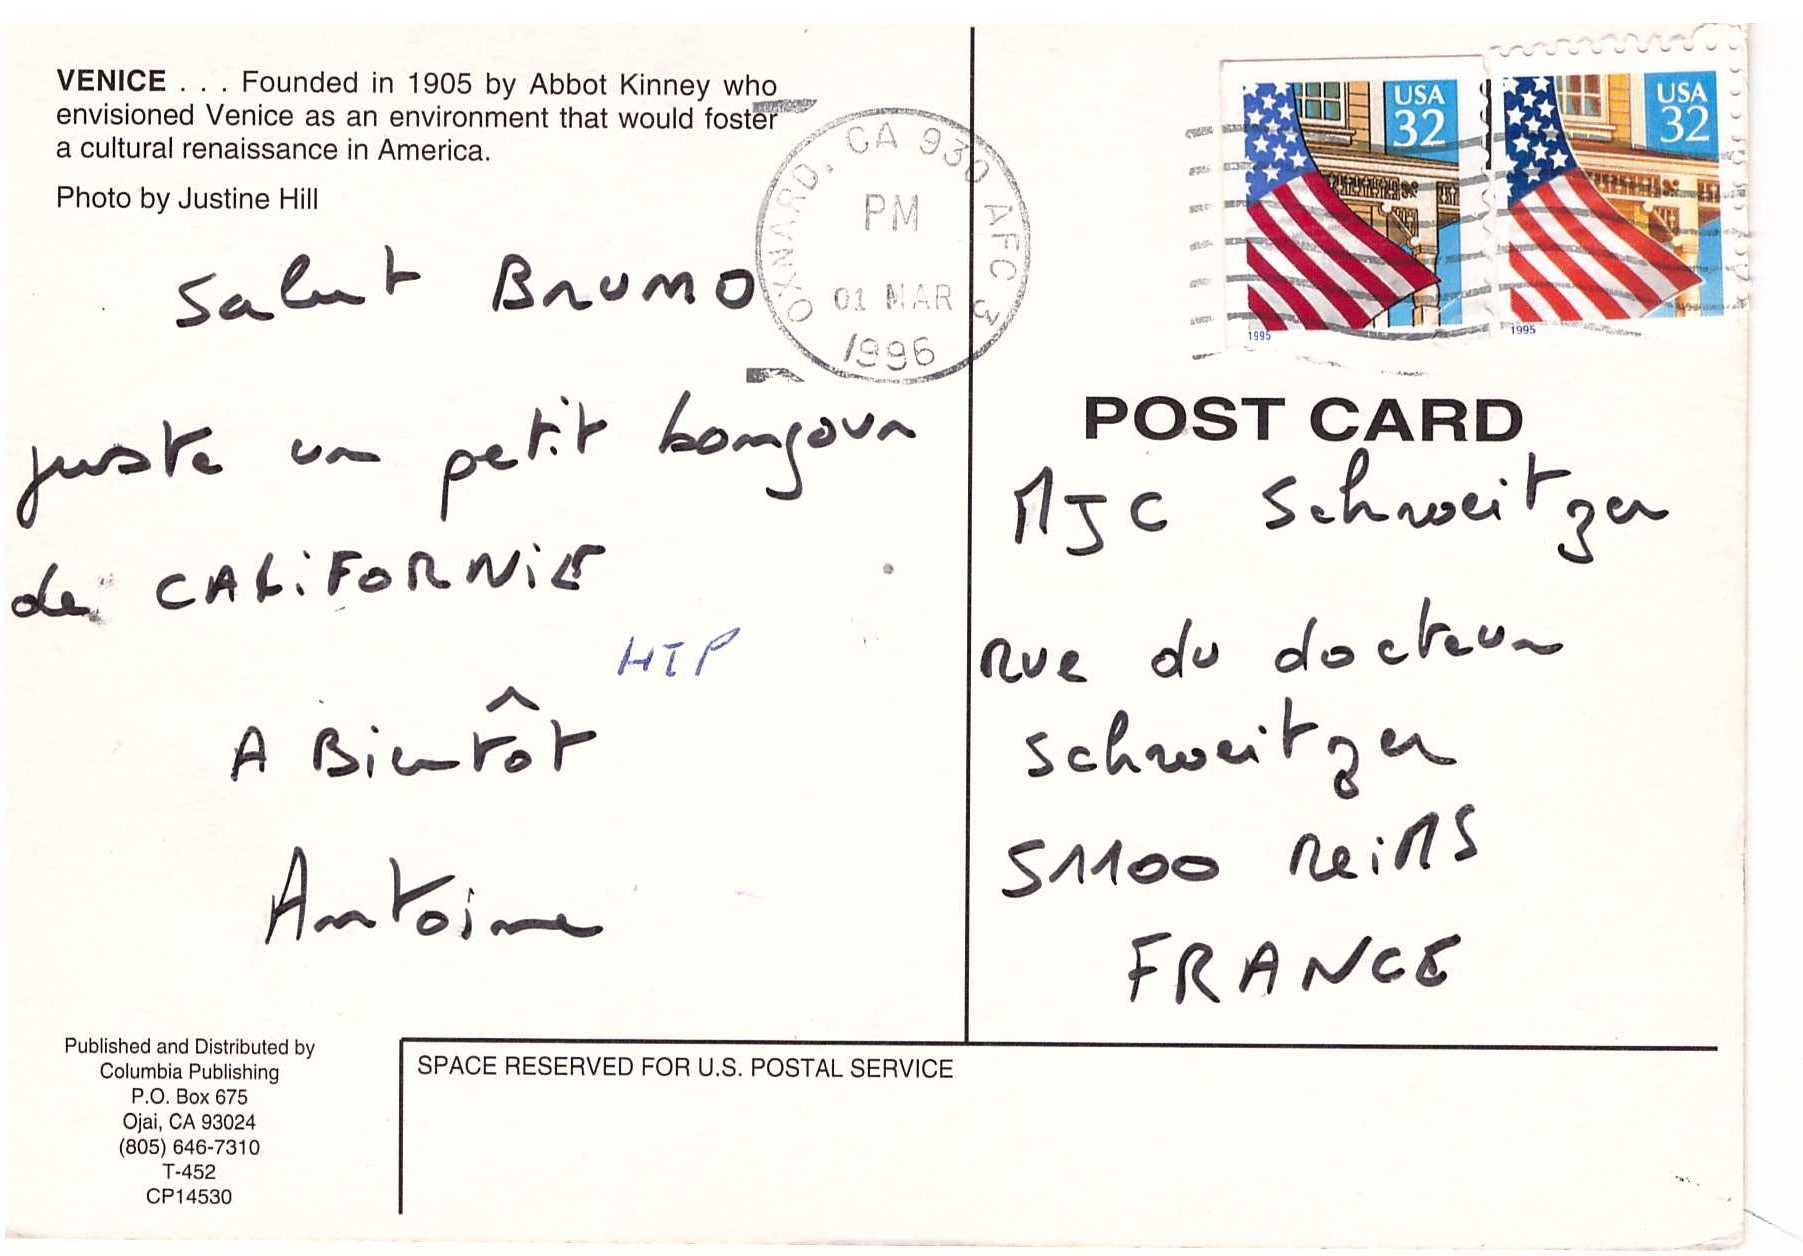 VENICE . . . Founded in 1905 by Abbot Kinney who
envisioned Venice as an environment that would foster
a cultural renaissance in America.
Photo by Justine Hill
Salut BRUNO
juste un petit bonjour
de CALiFORNiE
HIP
A Bientôt
Antoine
Published and Distributed by
Columbia Publishing
P.O. Box 675
Ojai, CA 93024
(805) 646-7310
T-452
CP14530
OXNARD, CA 930 AFC 3
PM
01 MAR
1996
USA
32
1995
USA
32
1995
POST CARD
MJC Schweitzer
rue du docteur
schweitzer
51100 ReiMS
FRANCE
SPACE RESERVED FOR U.S. POSTAL SERVICE